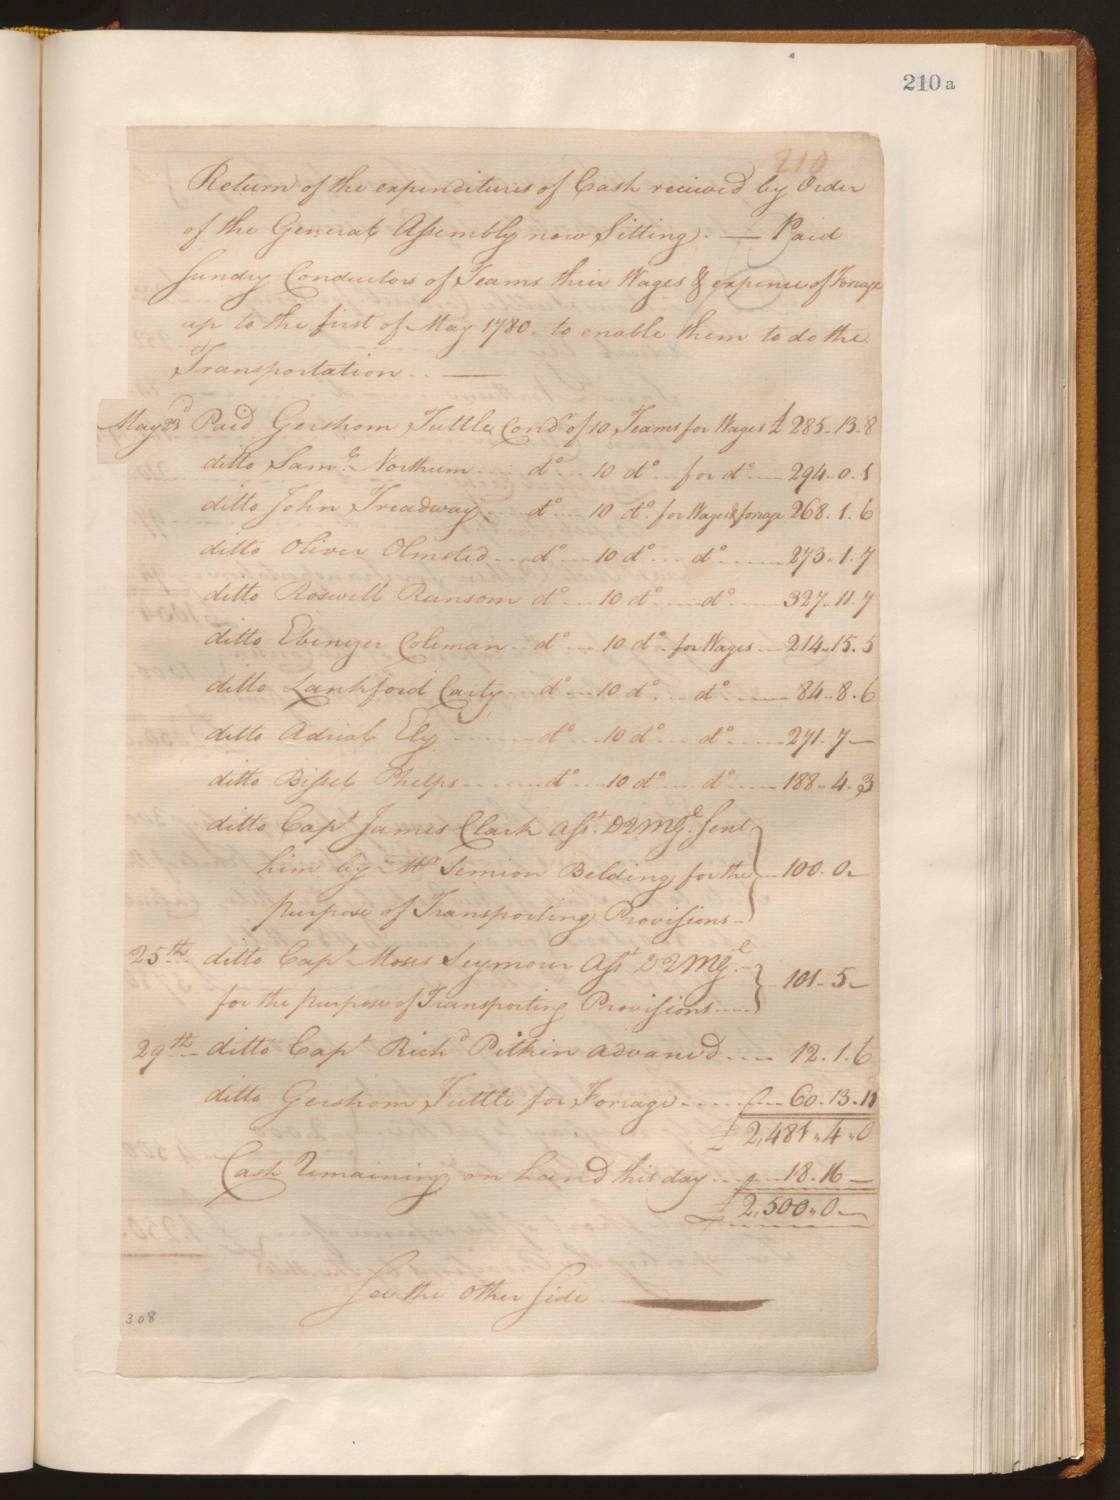 210 a
210
Return of the expenditures of Cash recieved by Order
of the General Assembly now Sitting. — Paid
Sundry Conductors of Teams their Wages & expence of Forage
up to the first of May 1780. to enable them to do the
Transportation. . —
May 23d Paid Gershom Tuttle Condr of 10 Teams for Wages £ 285..13..8
ditto Saml Northum .... do ... 10 do .. for do .... 294..0..5
ditto John Treadway ... do ... 10 do. for Wages & forage 268.1.6
ditto Oliver Olmsted ... do ... 10 do ... do ...... 273..1.7
ditto Roswell Ransom do ... 10 do ... do ...... 327..11.7
ditto Ebenezer Coleman .. do ... 10 do . for Wages ... 214..15.5
ditto Lankford Carty ... do ... 10 do ... do ...... 84..8.6
ditto Adrial Ely ........ do ... 10 do ... do ...... 271.7—
ditto Bissel Phelps ........ do ... 10 do ... do ..... 188..4.3
ditto Capt James Clark Asst. DQMGl. Sent
him by Mr Semion Belding for the } ... 100.0—
purpose of Transporting Provisions —
25th ditto Capt Moses Seymour Asst DQMGl. } .. 101..5—
for the purpose of Transporting Provisions ....
29th ditto Capt Richd Pitkin advanced .... 12.1.6
ditto Gershom Tuttle for Forage ........ £ .. 60.13.11
£ 2,481..4..0
Cash Remaining on hand this day .... £ .. 18.16—
£ 2,500..0—
See the other side
308